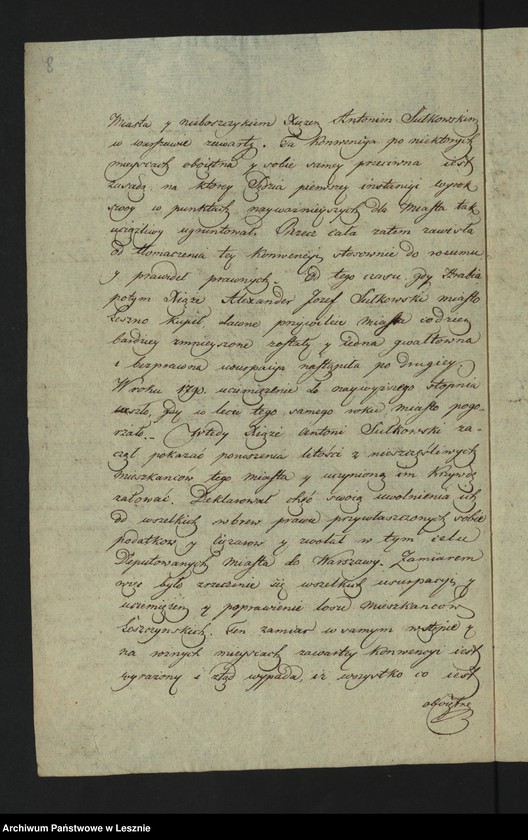 8
Miasta y nieboszczykiem Xięzem Antonim Sułkowskim
w warszawie zawarty. Ta Konwencya po niektorych
mieyscach oboiętna y sobie samey przeciwna iest
zasadą, na ktorey Sędzia pierwszey instancyi wyrok
swoy w punktach naywaznieyszych dla Miasta tak
uciązliwy ugruntował. Rzecz cała zatem zawisła
od tłomaczenia tey Konwencyi stosownie do rozumu
y prawideł prawnych. Od tego czasu, gdy Hrabia
potym Xiąże Alexander Jozef Sułkowski miasto
Leszno kupił dawne przywileie miasta codzień
bardziey zmnieyszone zostały y iedna gwałtowna
i bezprawna usurpacya nastąpiła po drugiey.
W roku 1790. uciemięzenie do naywyższego stopnia
uszło, gdy w lecie tego samego roku, miasto pogo-
rzało. Wtedy Xiąże Antoni Sułkowski za-
czął pokazać poruszenia litości z nieszczęśliwych
muszkancow tego miasta y uczynioną im krzywdę
załować. Deklarował chęć swoią uwolnienia ich
od wszelkich wbrew prawu przywłaszczonych sobie
podatkow y cięzarow y wołał w tym celu
Deputowanych miasta do Warszawy. Zamiarem
więc było zrzeczenie się wszelkich usurpacyi y
uciemięzeń y poprawienie losu Mieszkancow
Leszczynskich. Ten zamiar w samym wstępie y
na roznych mieyscach zawartey konwencyi iest
wyrazony i ztąd wypada, iż wszystko co iest
oboiętne
Archiwum Państwowe w Lesznie